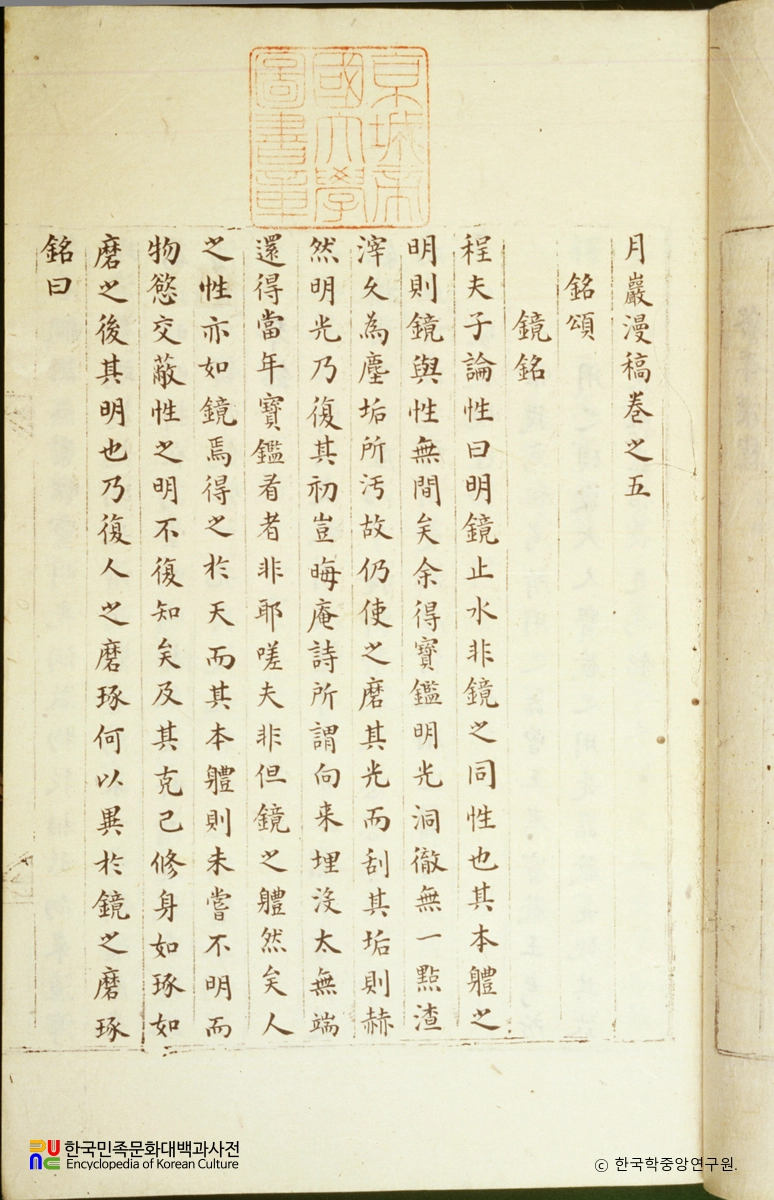 京城帝
國大學
圖書章
月巖漫稿卷之五
銘頌
鏡銘
程夫子論性曰明鏡止水非鏡之同性也其本軆之
明則鏡與性無間矣余得寶鑑明光洞徹無一點渣
滓久為塵垢所汚故仍使之磨其光而刮其垢則赫
然明光乃復其初豈晦庵詩所謂向来埋沒太無端
還得當年寶鑑看者非耶嗟夫非但鏡之軆然矣人
之性亦如鏡焉得之於天而其本軆則未嘗不明而
物慾交蔽性之明不復知矣及其克己修身如琢如
磨之後其明也乃復人之磨琢何以異於鏡之磨琢
銘曰
한국민족문화대백과사전
Encyclopedia of Korean Culture
© 한국학중앙연구원.